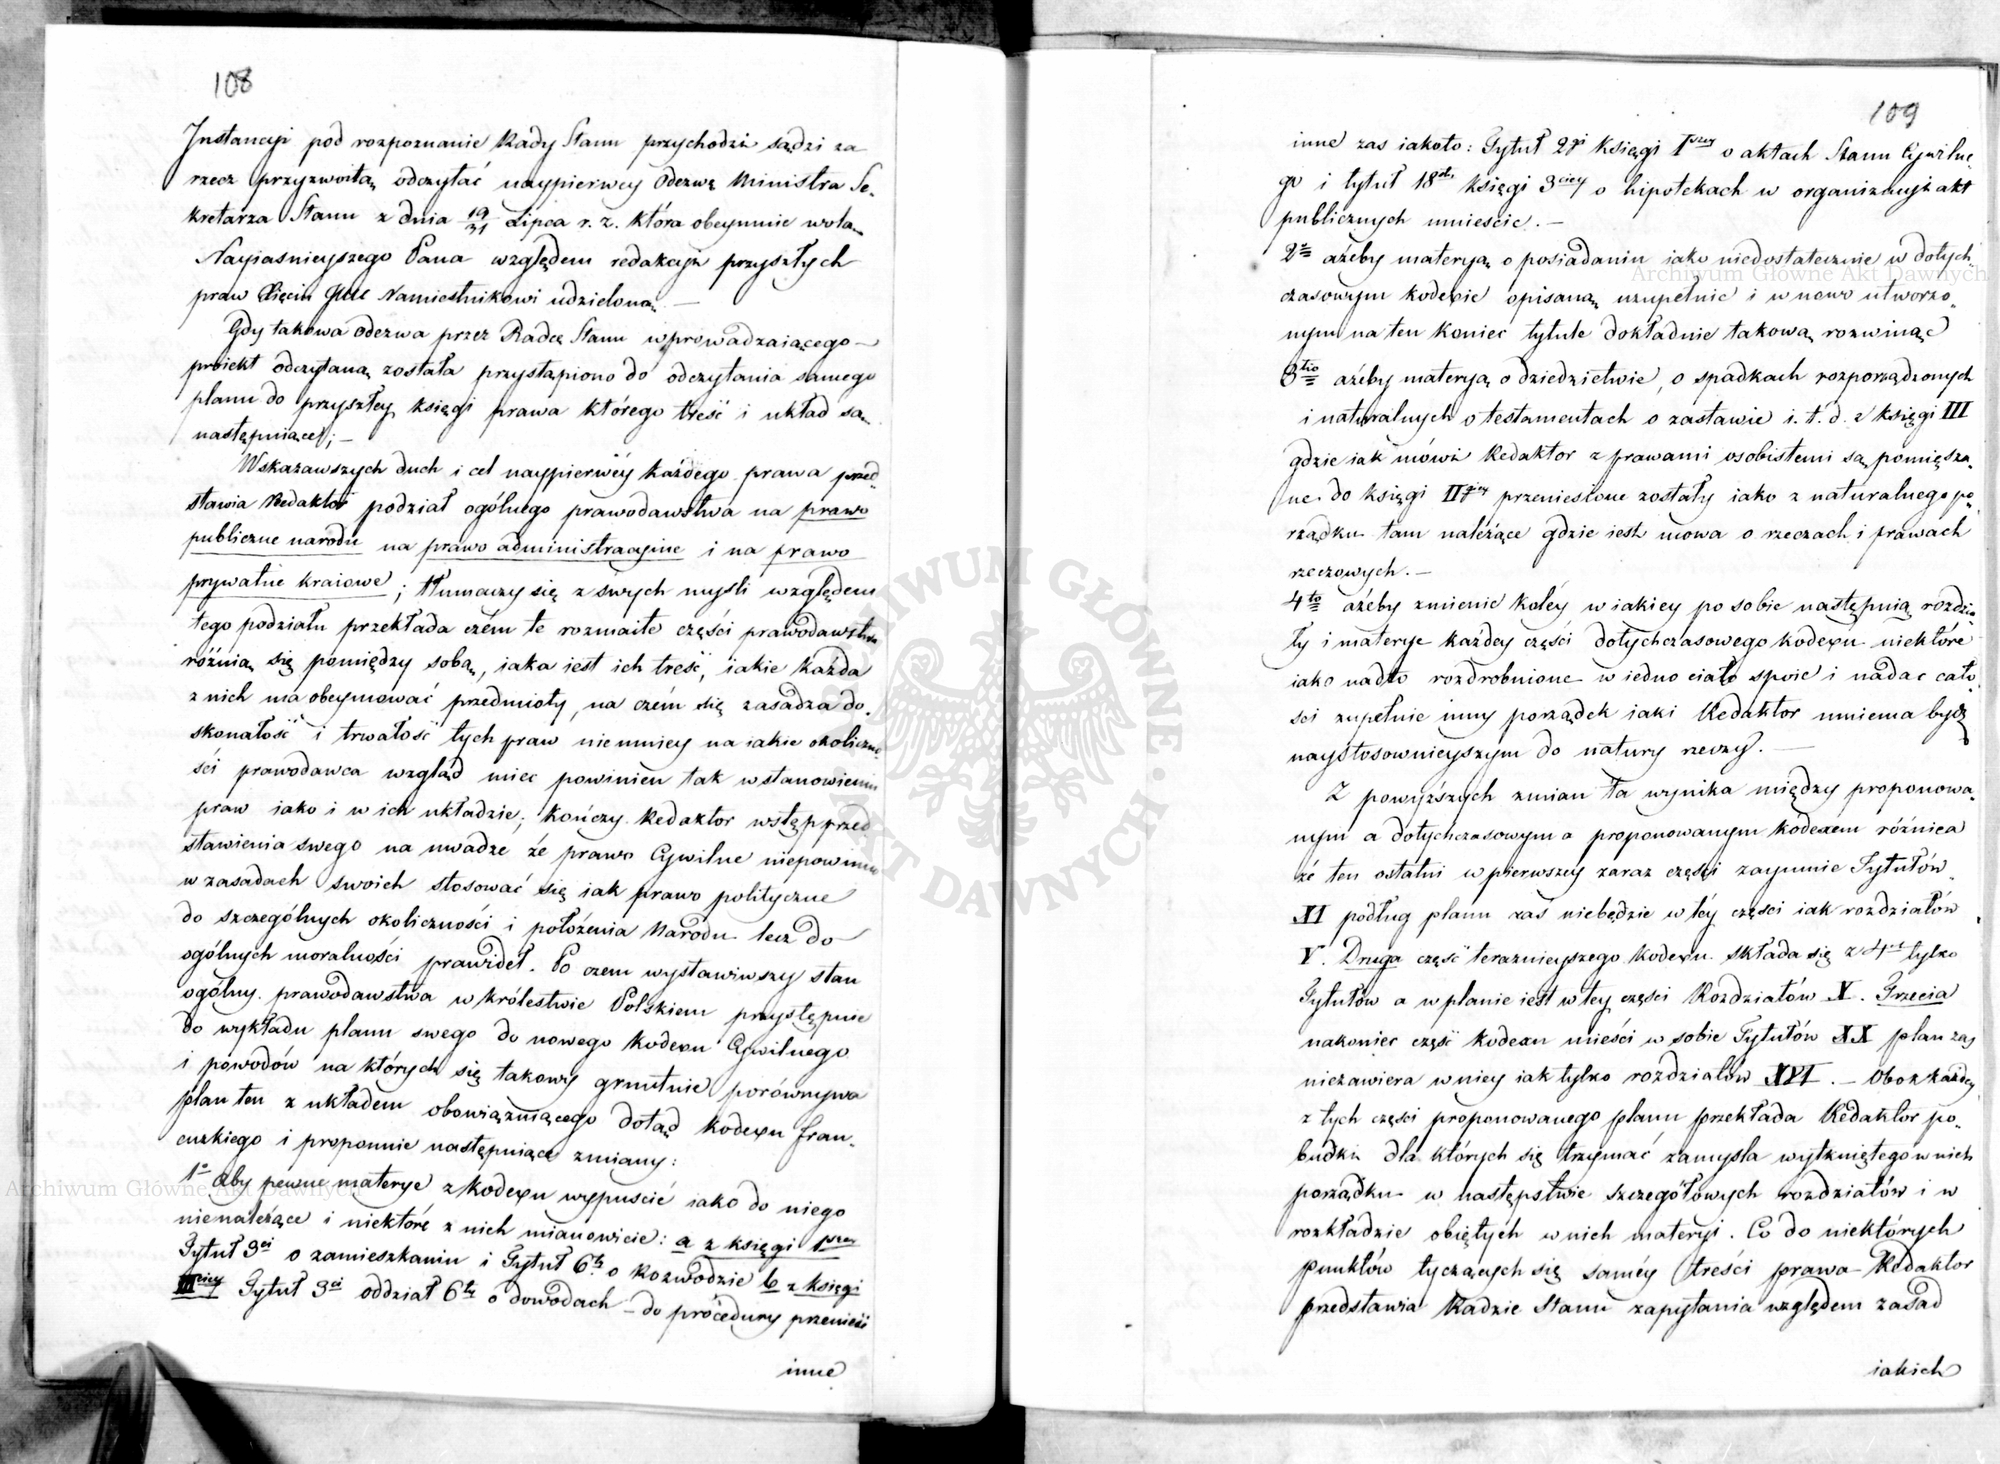 108
Instancyi pod rozpoznanie Rady Stanu przychodzi sądzi za
rzecz przyzwoitą odczytać naypierwey Odezwę Ministra Se-
kretarza Stanu z dnia 19/31 Lipca r. z. która obeymuie wolą
Nayiasnieyszego Pana względem redakcyi przyszłych
praw Xięciu Namiestnikowi udzieloną. —
Gdy takowa Odezwa przez Radcę Stanu wprowadzaiącego
proiekt odczytaną została przystąpiono do odczytania samego
planu do przyszłey księgi prawa którego treść i układ są
następuiące; —
Wskazawszych duch i cel naypierwéy każdego prawa przed-
stawia Redaktor podział ogólnego prawodawstwa na prawo
publiczne narodu na prawo administracyine i na prawo
prywatne kraiowe; tłumaczy się z swych mysli względem
tego podziału przekłada czém te rozmaite części prawodawstwa
różnią się pomiędzy sobą, iaka iest ich treść, iakie każda
z nich ma obeymować przedmioty, na czém się zasadza do-
skonałość i trwałość tych praw niemniey na iakie okoliczno-
ści prawodawca wzgląd miec powinien tak w stanowieniu
praw iako i w ich układzie; kończy Redaktor wstęp przed
stawienia swego na uwadze że prawo Cywilne niepowinno
w zasadach swoich stosować się iak prawo polityczne
do szczególnych okoliczności i położenia Narodu lecz do
ogólnych moralności prawideł. Po czem wystawiwszy stan
ogólny prawodawstwa w królestwie Polskiem przystępuie
do wykładu planu swego do nowego Kodexu Cywilnego
i powodów na których się takowy gruntuie porównywa
plan ten z układem obowiązuiącego dotąd Kodexu fran-
cuzkiego i proponuie następuiące zmiany:
1° aby pewne materye z Kodexu wypuścić iako do niego
nienależące i niektóre z nich mianowicie: a z księgi 1szey
Tytuł 3ci o zamieszkaniu i Tytuł 6ty o Rozwodzie b z księgi
IIIciey Tytuł 3ci oddział 6ty o dowodach — do procedury przenieść
inne
109
inne zas iakoto: Tytuł 2gi księgi 1szey o aktach Stanu Cywilne-
go i tytuł 18sty księgi 3ciey o hipotekach w organizacyi akt
publicznych umieścic. —
2do ażeby materyą o posiadaniu iako niedostatecznie w dotych-
czasowym kodexie opisaną uzupełnic i w nowo utworzo-
nym na ten koniec tytule dokładnie takową rozwinąć
3tio ażeby materyą o dziedzictwie, o spadkach rozporządzonych
i naturalnych o testamentach o zastawie i. t. d. z księgi III
gdzie iak mówi Redaktor z prawami osobistemi są pomięsza-
ne do księgi IIgiey przeniesione zostały iako z naturalnego po-
rządku tam należące gdzie iest mowa o rzeczach i prawach
rzeczowych. —
4to ażeby zmienic koléy w iakiey po sobie następuią rozdzia
ły i materye każdey części dotychczasowego kodexu niektóre
iako nadto rozdrobnione w iedno ciało spoic i nadac cało-
sci zupełnie inny porządek iaki Redaktor mniema bydź
naystosownieyszym do natury rzeczy. —
Z powyższych zmian ta wynika między proponowa-
nym a dotychczasowym a proponowanym kodexem róźnica
że ten ostatni w pierwszey zaraz części zaymuie Tytułów
XI podług planu zaś niebędzie w téy części iak rozdziałów
V. Druga część teraznieyszego Kodexu składa się z 4ch tylko
Tytułów a w planie iest w tey części Rozdziałów X. Trzecia
nakoniec część kodexu mieści w sobie Tytułów XX plan zaś
niezawiera w niey iak tylko rozdziałów XVI. — Obok każdey
z tych części proponowanego planu przekłada Redaktor po-
budki dla których się trzymać zamyśla wytkniętego w nich
porządku w następstwie szczegółowych rozdziałów i w
rozkładzie obiętych w nich materyi. Co do niektórych
punktów tyczących się saméy treści prawa Redaktor
przedstawia Radzie Stanu zapytania względem zasad
iakich
Archiwum Główne Akt Dawnych
Archiwum Główne Akt Dawnych
ARCHIWUM GŁÓWNE AKT DAWNYCH